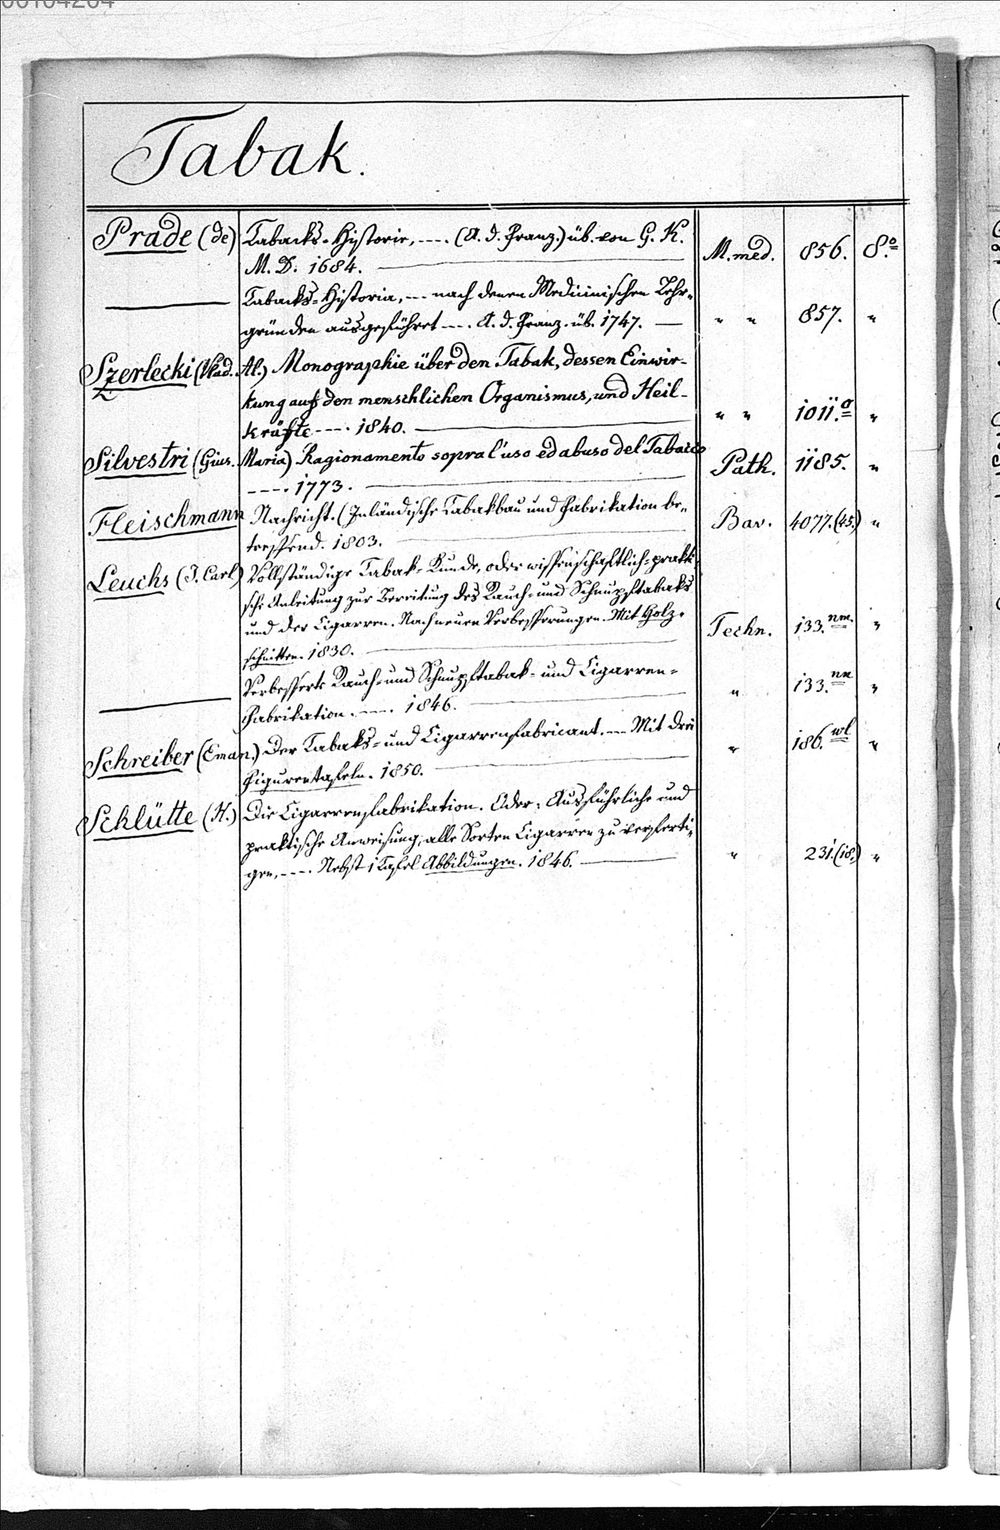 Tabak.
Prade (de) Tabacks-Historie, ---. (A. d. Franz.) üb. von G. K.
M. D. 1684. M. med. 856. 8.º
Tabacks-Historia, --- nach denen Medicinischen Lehr-
gründen ausgeführet ---. A. d. Franz. üb. 1747. " " 857. "
Szerlecki (Vlad. Al.) Monographie über den Tabak, dessen Einwir-
kung auf den menschlichen Organismus, und Heil-
kräfte ---. 1840. " " 1011.a "
Silvestri (Gius. Maria) Ragionamento sopra l'uso ed abuso del Tabacco
---. 1773. Path. 1185. "
Fleischmann Nachricht. (Inländische Tabakbau und Fabrikation be-
treffend. 1803. Bav. 4077.(45.) "
Leuchs (J. Carl) Vollständige Tabak-Kunde, oder wissenschaftlich-prakti-
sche Anleitung zur Bereitung des Rauch- und Schnupftabaks
und der Cigarren. Nach neuen Verbesserungen. Mit Holz-
schnitten. 1830. Techn. 133.nm. "
Verbesserte Rauch- und Schnupftabak- und Cigarren-
Fabrikation. ---. 1846. " 133.nn "
Schreiber (Eman.) Der Tabaks- und Cigarrenfabricant. --- Mit drei
Figurentafeln. 1850. " 186.wl "
Schlütte (H.) Die Cigarrenfabrikation. Oder: Ausführliche und
praktische Anweisung, alle Sorten Cigarren zu verferti-
gen, ---. Nebst 1 Tafel Abbildungen. 1846. " 231.(18.) "